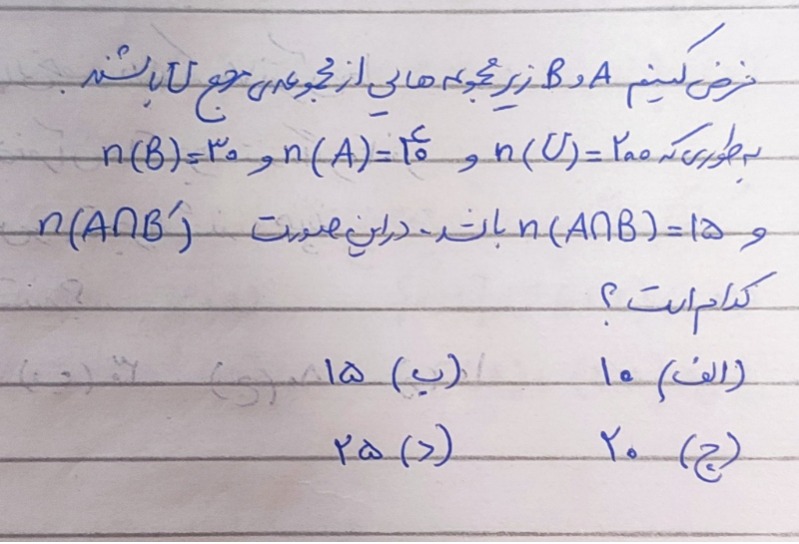 فرض کنیم A و B زیرمجموعه هایی از مجموعه‌ی مرجع U باشند.
به طوری که n(U)=۲۰۰ و n(A)=۴۰ و n(B)=۳۰
و n(A∩B)=۱۵ باشد. در این صورت n(A∩B′)
کدام است؟
الف) ۱۰ ب) ۱۵
ج) ۲۰ د) ۲۵